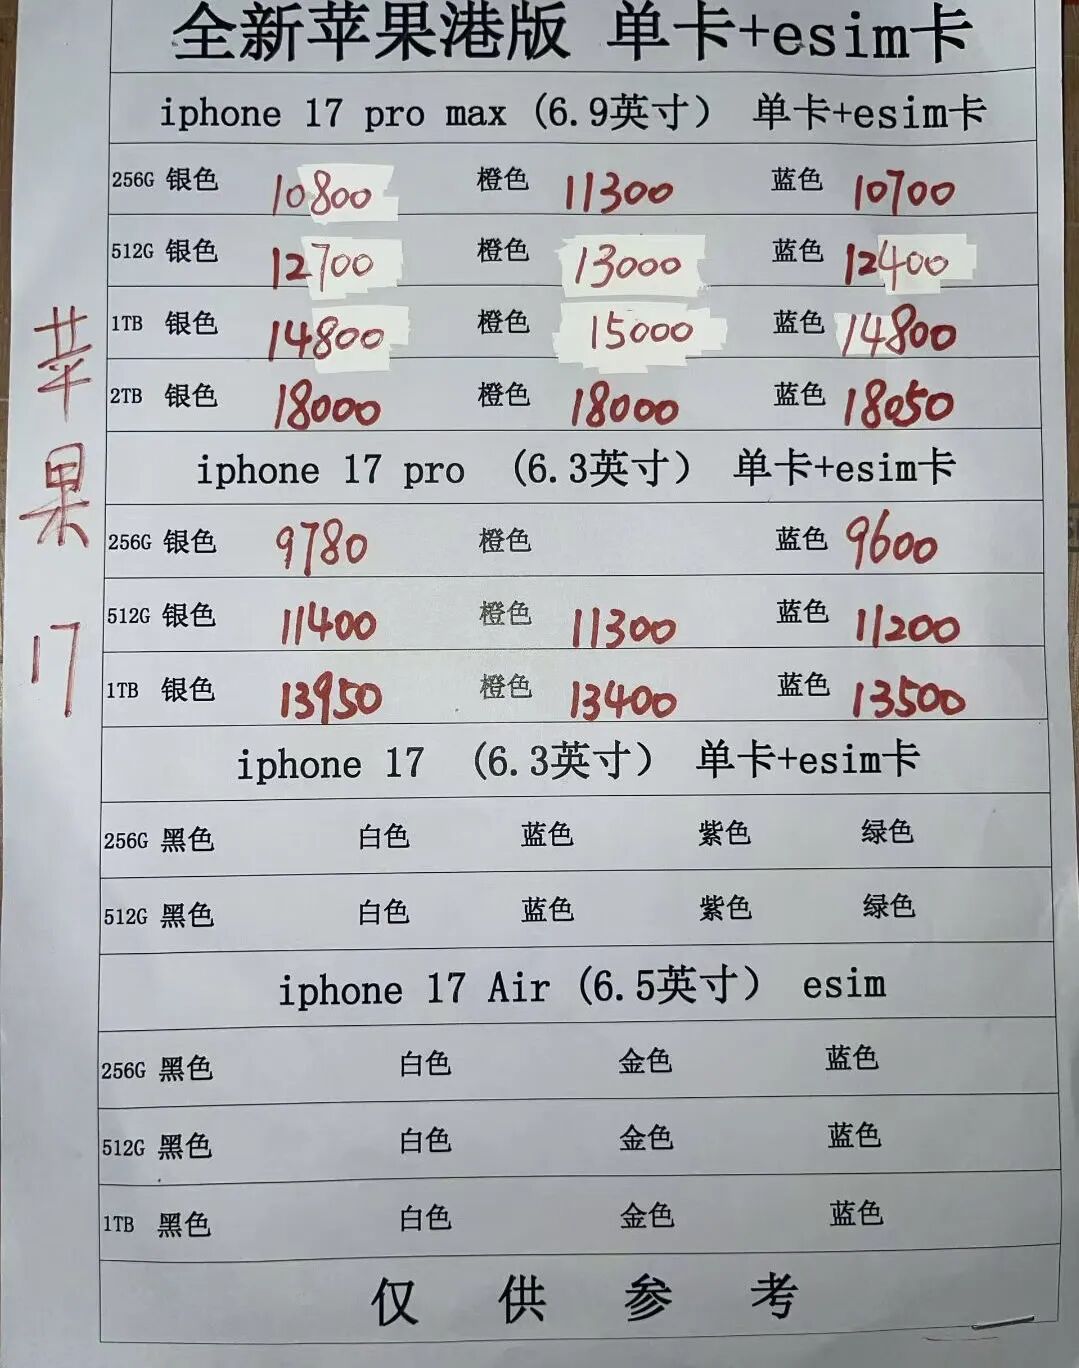 全新苹果港版 单卡+esim卡
iphone 17 pro max (6.9英寸） 单卡+esim卡
256G 银色 10800 橙色 11300 蓝色 10700
512G 银色 12700 橙色 13000 蓝色 12400
1TB 银色 14800 橙色 15000 蓝色 14800
2TB 银色 18000 橙色 18000 蓝色 18050
iphone 17 pro (6.3英寸） 单卡+esim卡
256G 银色 9780 橙色 蓝色 9600
512G 银色 11400 橙色 11300 蓝色 11200
1TB 银色 13950 橙色 13400 蓝色 13500
iphone 17 (6.3英寸） 单卡+esim卡
256G 黑色 白色 蓝色 紫色 绿色
512G 黑色 白色 蓝色 紫色 绿色
iphone 17 Air (6.5英寸） esim
256G 黑色 白色 金色 蓝色
512G 黑色 白色 金色 蓝色
1TB 黑色 白色 金色 蓝色
仅供参考
苹果17